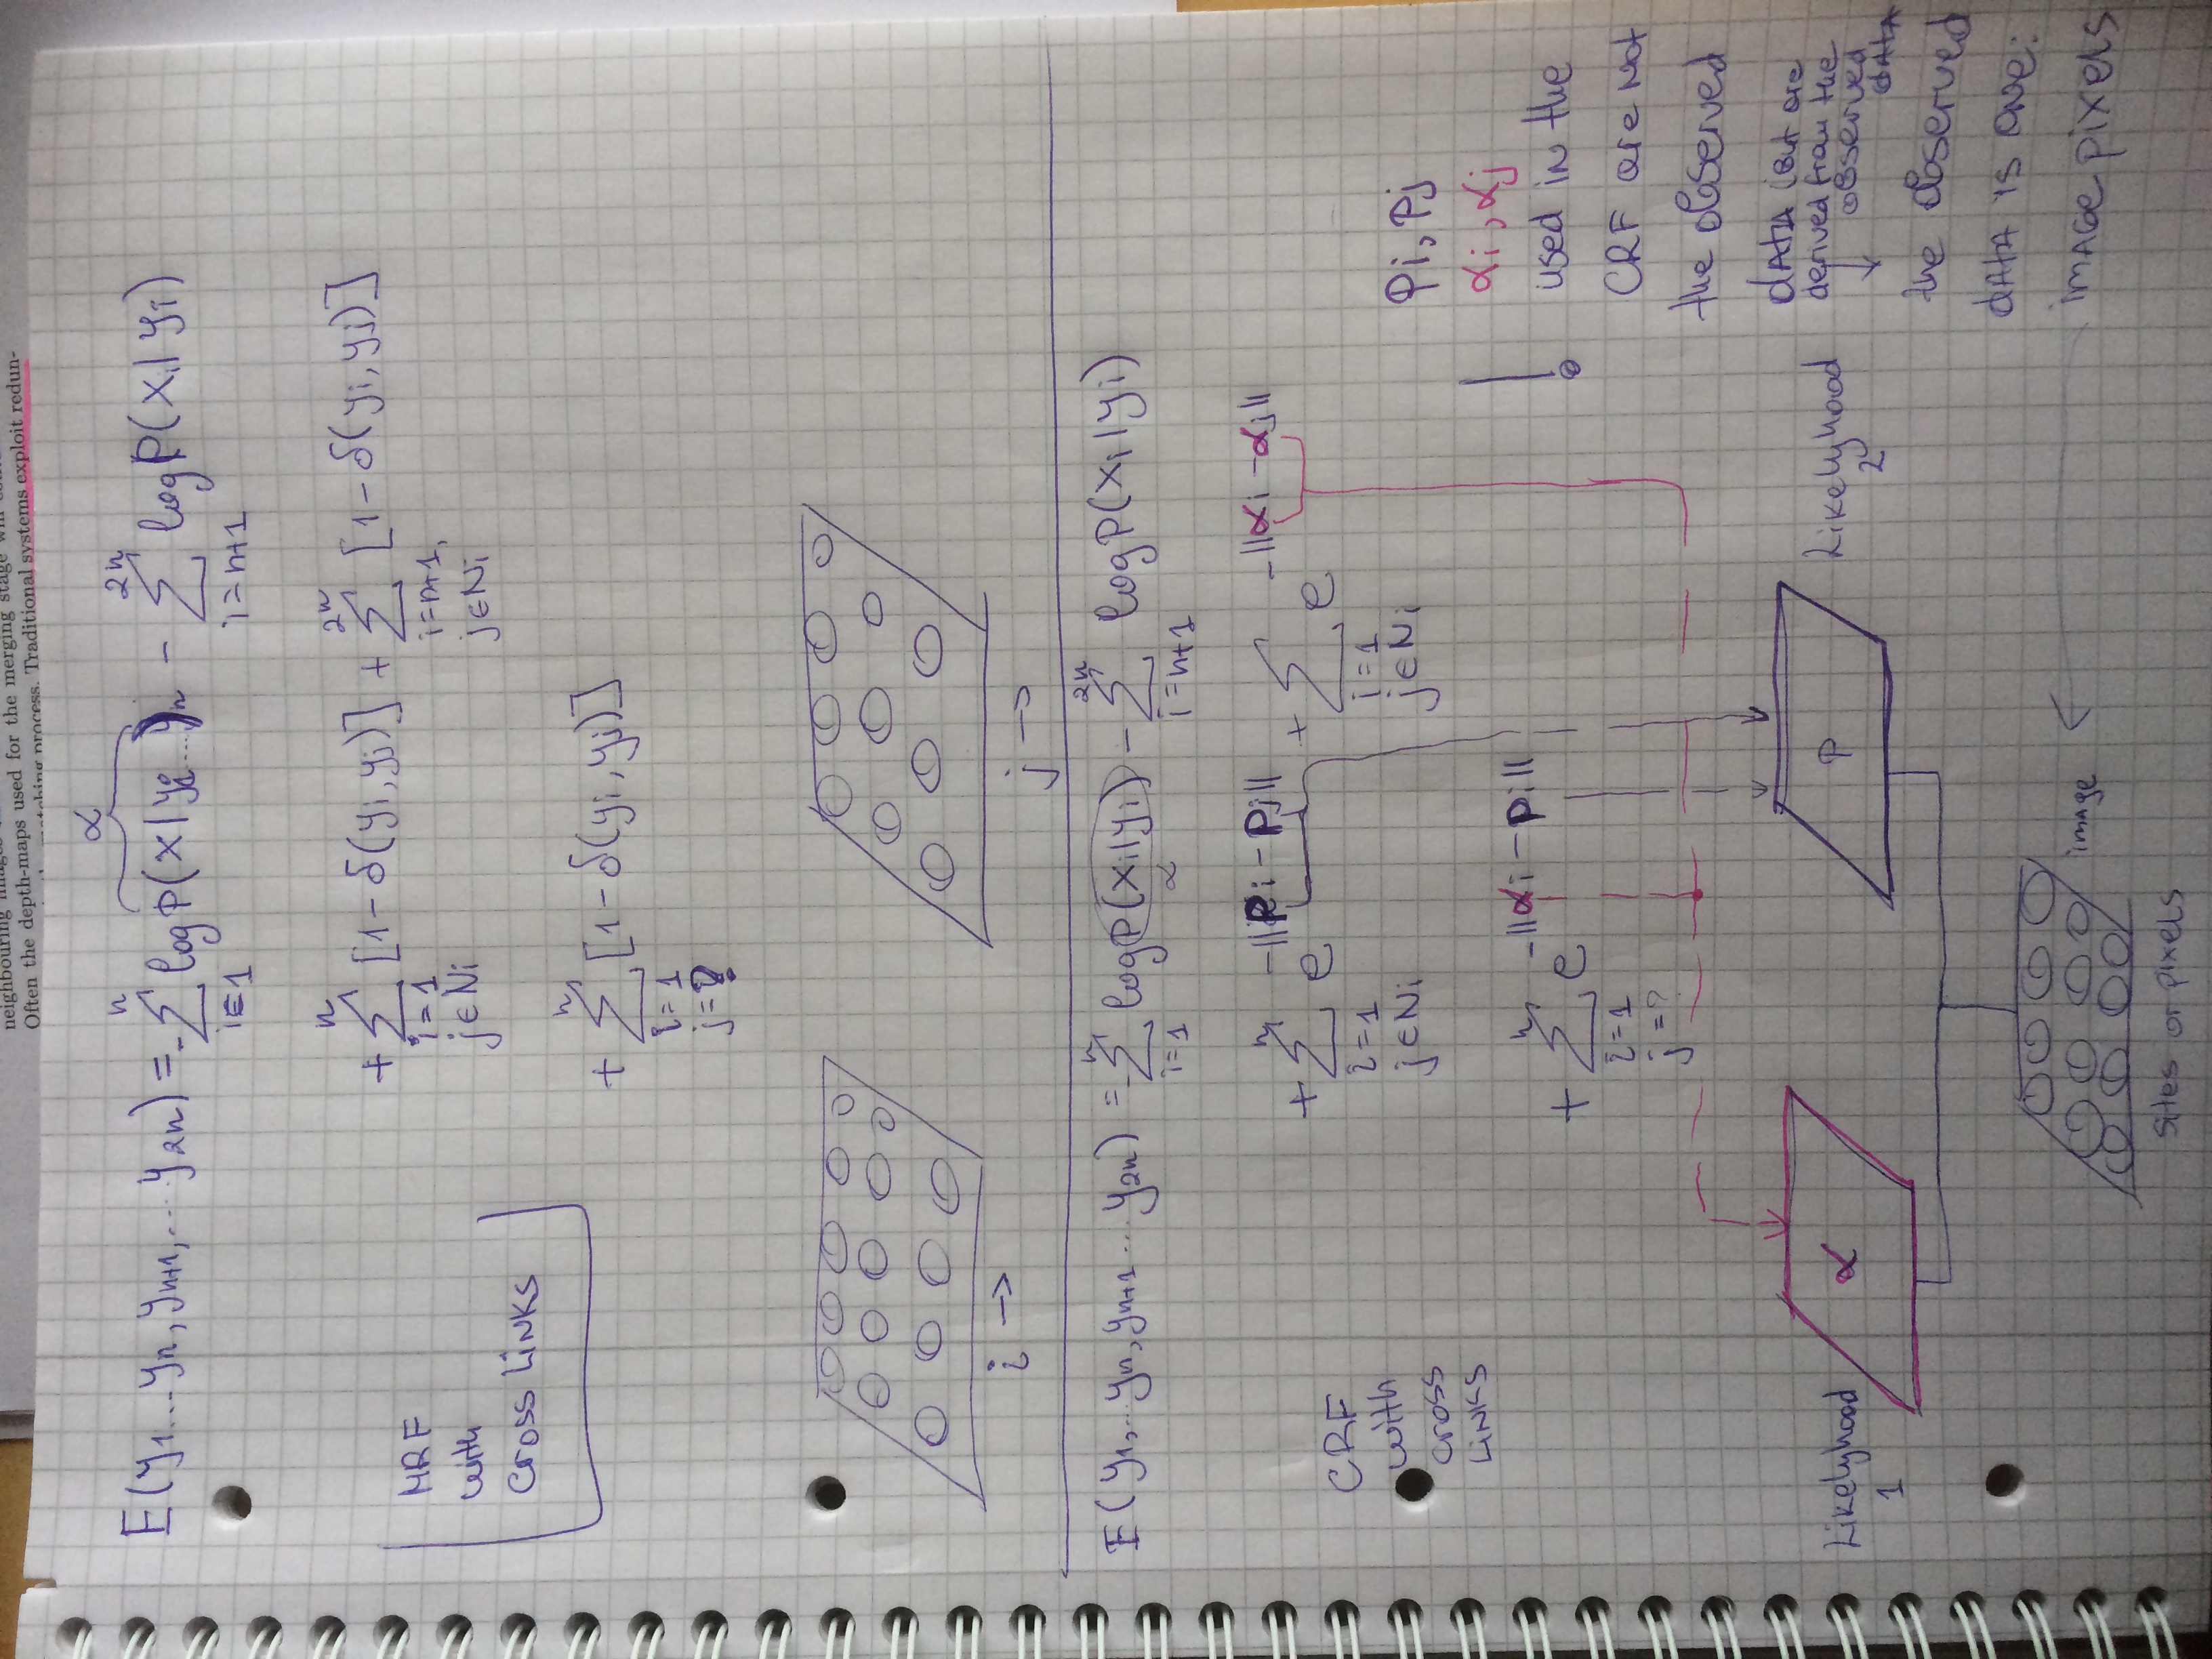 neighbouring images
Often the depth-maps used for the merging stage will
matching process. Traditional systems exploit redun-
α
E(y1...yn, yn+1,...y2n) = -∑ log P(x|yi...yn - ∑ log P(xi|yi)
n
i=1
2n
i=n+1
+ ∑ [1-δ(yi,yj)] + ∑ [1-δ(yi,yj)]
n
i=1
j∈Ni
2n
i=n+1,
j∈Ni
MRF
with
cross LiNKS
+ ∑ [1-δ(yi,yj)]
n
i=1
j=?
i →
j →
E(y1,...yn, yn+1...y2n) = -∑ log P(xi|yi) - ∑ log P(xi|yi)
n
i=1
α
2n
i=n+1
+ ∑ e^-||pi-pj|| + ∑ e^-||αi-αj||
n
i=1
j∈Ni
i=1
j∈Ni
CRF
with
cross
LiNKS
+ ∑ e^-||αi-pi||
n
i=1
j=?
!
Pi, Pj
αi, αj
used in the
CRF are Not
the observed
dAtA (But are
derived from the
observed
dAtA
the observed
dAtA is one:
imAge pixels
Likelyhood
1
α
P
Likelyhood
2
imAge
sites or pixels